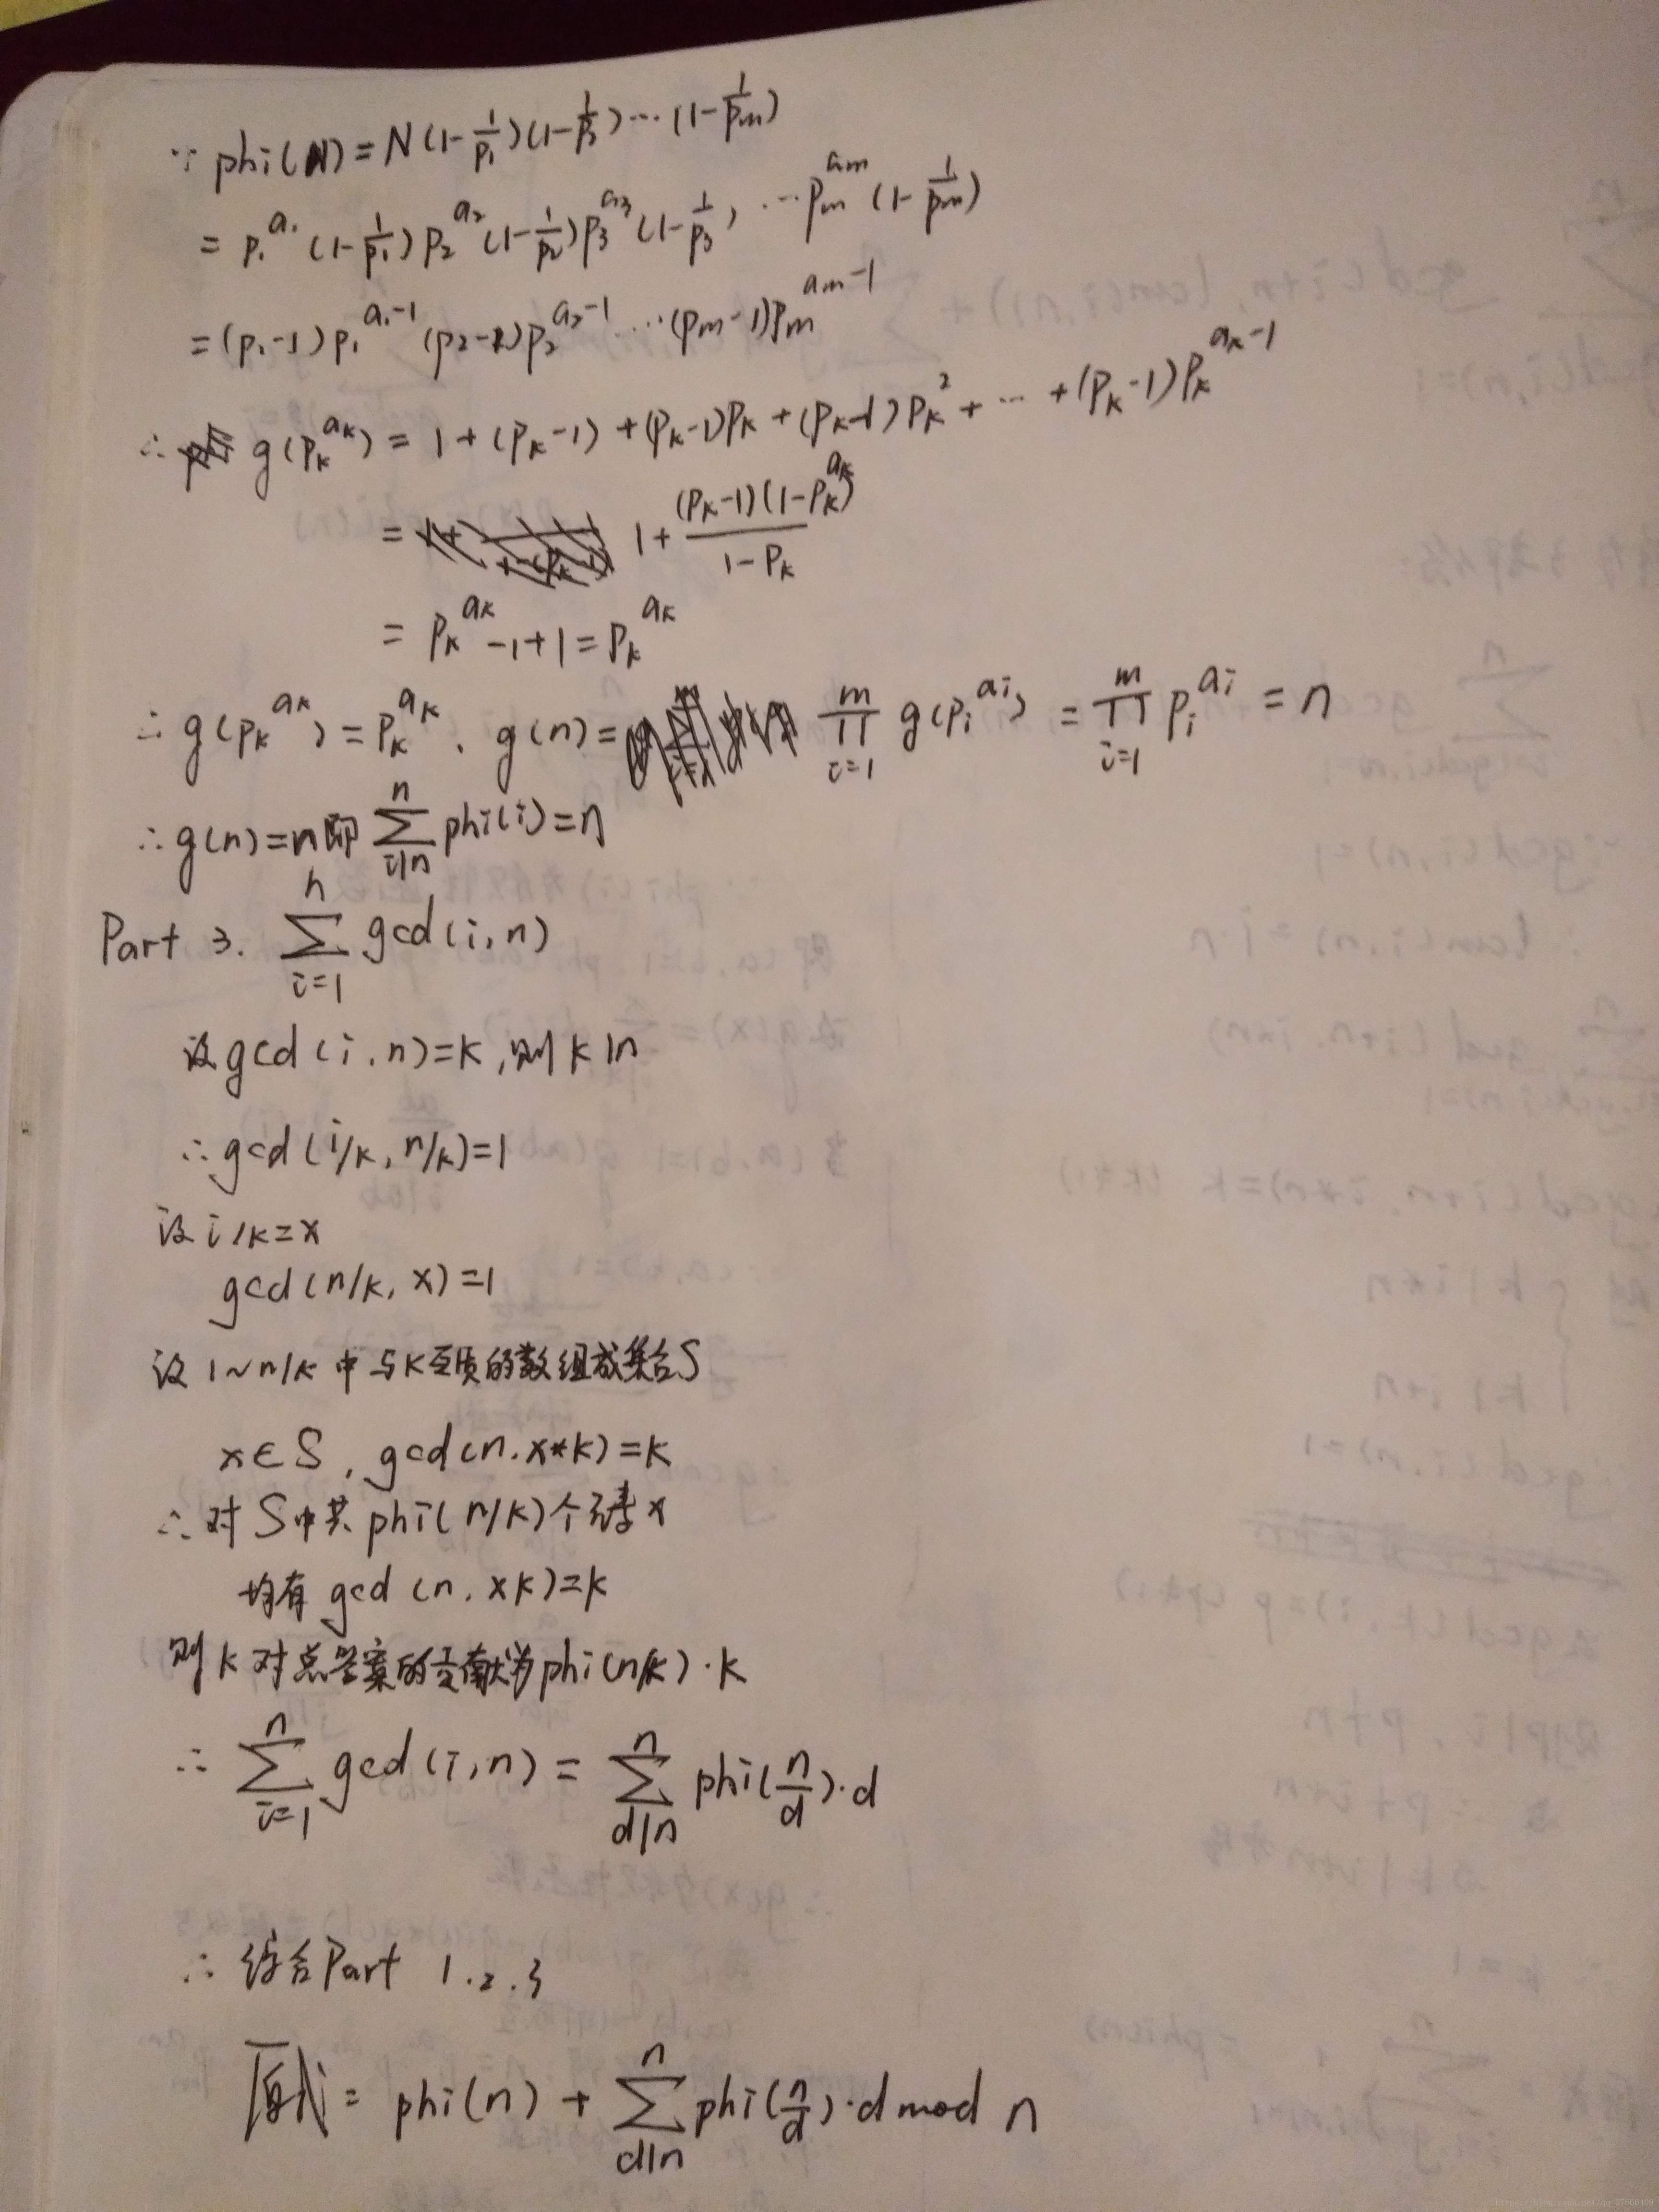 ∵ phi(N) = N(1-1/p₁)(1-1/p₂)···(1-1/pm)
= p₁^a₁ (1-1/p₁) p₂^a₂ (1-1/p₂) p₃^a₃ (1-1/p₃) ··· pm^am (1-1/pm)
= (p₁-1) p₁^(a₁-1) (p₂-1) p₂^(a₂-1) ··· (pm-1) pm^(am-1)
∴ g(pk^ak) = 1 + (pk-1) + (pk-1)pk + (pk-1)pk² + ··· + (pk-1)pk^(ak-1)
= 1 + (pk-1)(1-pk^ak)/(1-pk)
= pk^ak -1+1 = pk^ak
∴ g(pk^ak) = pk^ak, g(n) = ∏_{i=1}^{m} g(pi^ai) = ∏_{i=1}^{m} pi^ai = n
∴ g(n)=n 即 ∑_{i|n}^{n} phi(i) = n
Part 3. ∑_{i=1}^{n} gcd(i,n)
设gcd(i,n)=k,则k|n
∴ gcd(i/k, n/k)=1
设i/k=x
gcd(n/k, x)=1
设1~n/k中与k互质的数组成集合S
x∈S, gcd(n, x*k)=k
∴对S中共phi(n/k)个元素x
均有gcd(n, xk)=k
则k对总答案的贡献为phi(n/k)·k
∴ ∑_{i=1}^{n} gcd(i,n) = ∑_{d|n}^{n} phi(n/d)·d
∴综合Part 1.2.3
原式= phi(n) + ∑_{d|n}^{n} phi(n/d)·d mod n